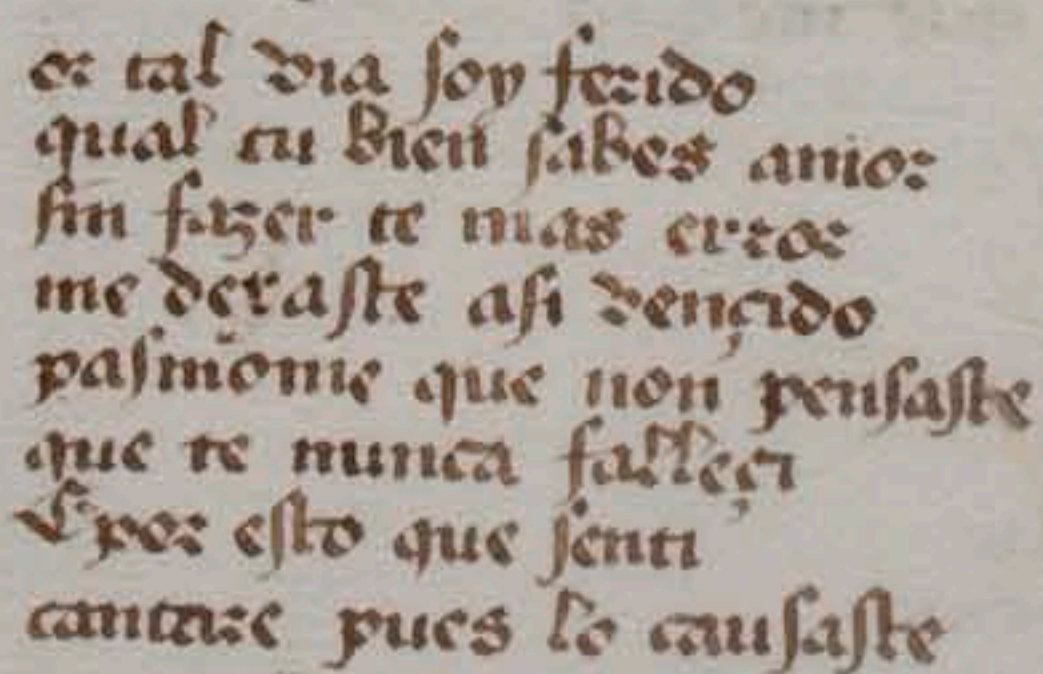 or tal via soy ferido
qual tu bien sabes amor
sin fazer te mas error
me dexaste asi vençido
pasmome que non pensaste
que te nunca falleçi
E por esto que senti
cantare pues lo causaste